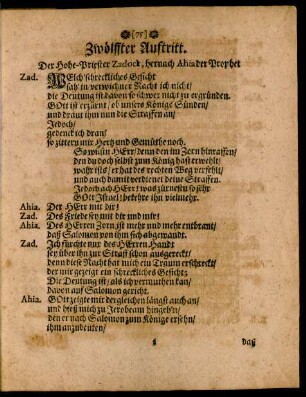 [75]
Zwölffter Aufftritt.
Der Hohe-Priester Zadock, hernach Ahia der Prophet
Zad. Welch schreckliches Gesicht
sah' in verwichner Nacht ich nicht/
die Deutung ist davon so schwer nicht zu ergründen.
GOtt ist erzürnt/ ob unsers Königs Sünden/
und draut ihm nun die Straffen an/
Jedoch/
gedenck ich dran/
so zittern mir Hertz und Gemüthe noch.
So wilst du HErr/ denn den im Zorn hinraffen/
den du doch selbst zum König hast erwehlt/
wahr ists/ er hat des rechten Weg verfehlt/
und auch damit verdienet deine Straffen.
Jedoch ach HErr/ was zürnestu so sehr
GOtt Israel/ bekehre ihn vielmehr.
Ahia. Der HErr mit dir/
Zad. Des Friede sey mit dir und mir/
Ahia. Des HErren Zorn/ ist mehr und mehr entbrant/
daß Salomon von ihm sich abgewandt.
Zad. Ich fürchte nur des HErren Handt
sey über ihn zur Straff schon ausgereckt/
denn diese Nacht hat mich ein Traum erschreckt/
der mir gezeigt ein schreckliches Gesicht;
Die Deutung ist/ als ich vermuthen kan/
davon auf Salomon gericht.
Ahia. GOtt zeigte mit dergleichen längst auch an/
und hieß mich zu Jerobeam hingeh'n/
den er nach Salomon zum Könige ersehn/
ihm anzudeuten/
daß